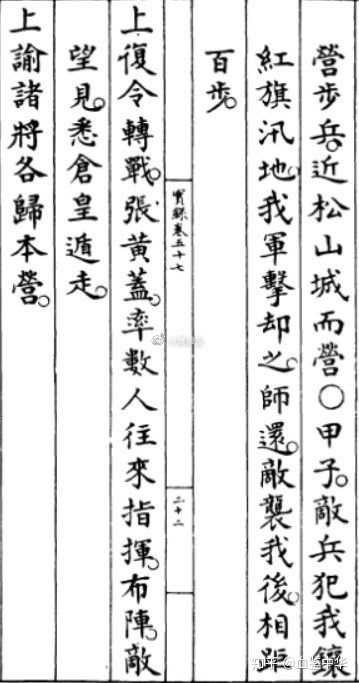 營步兵。近松山城而營○甲子。敵兵犯我鑲
紅旗汛地。我軍擊却之。師還。敵襲我後。相距
百步。
實錄卷五十七
二十二
上復令轉戰。張黃蓋。率數人往來指揮。布陣。敵
望見。悉倉皇遁走。
上諭諸將各歸本營。